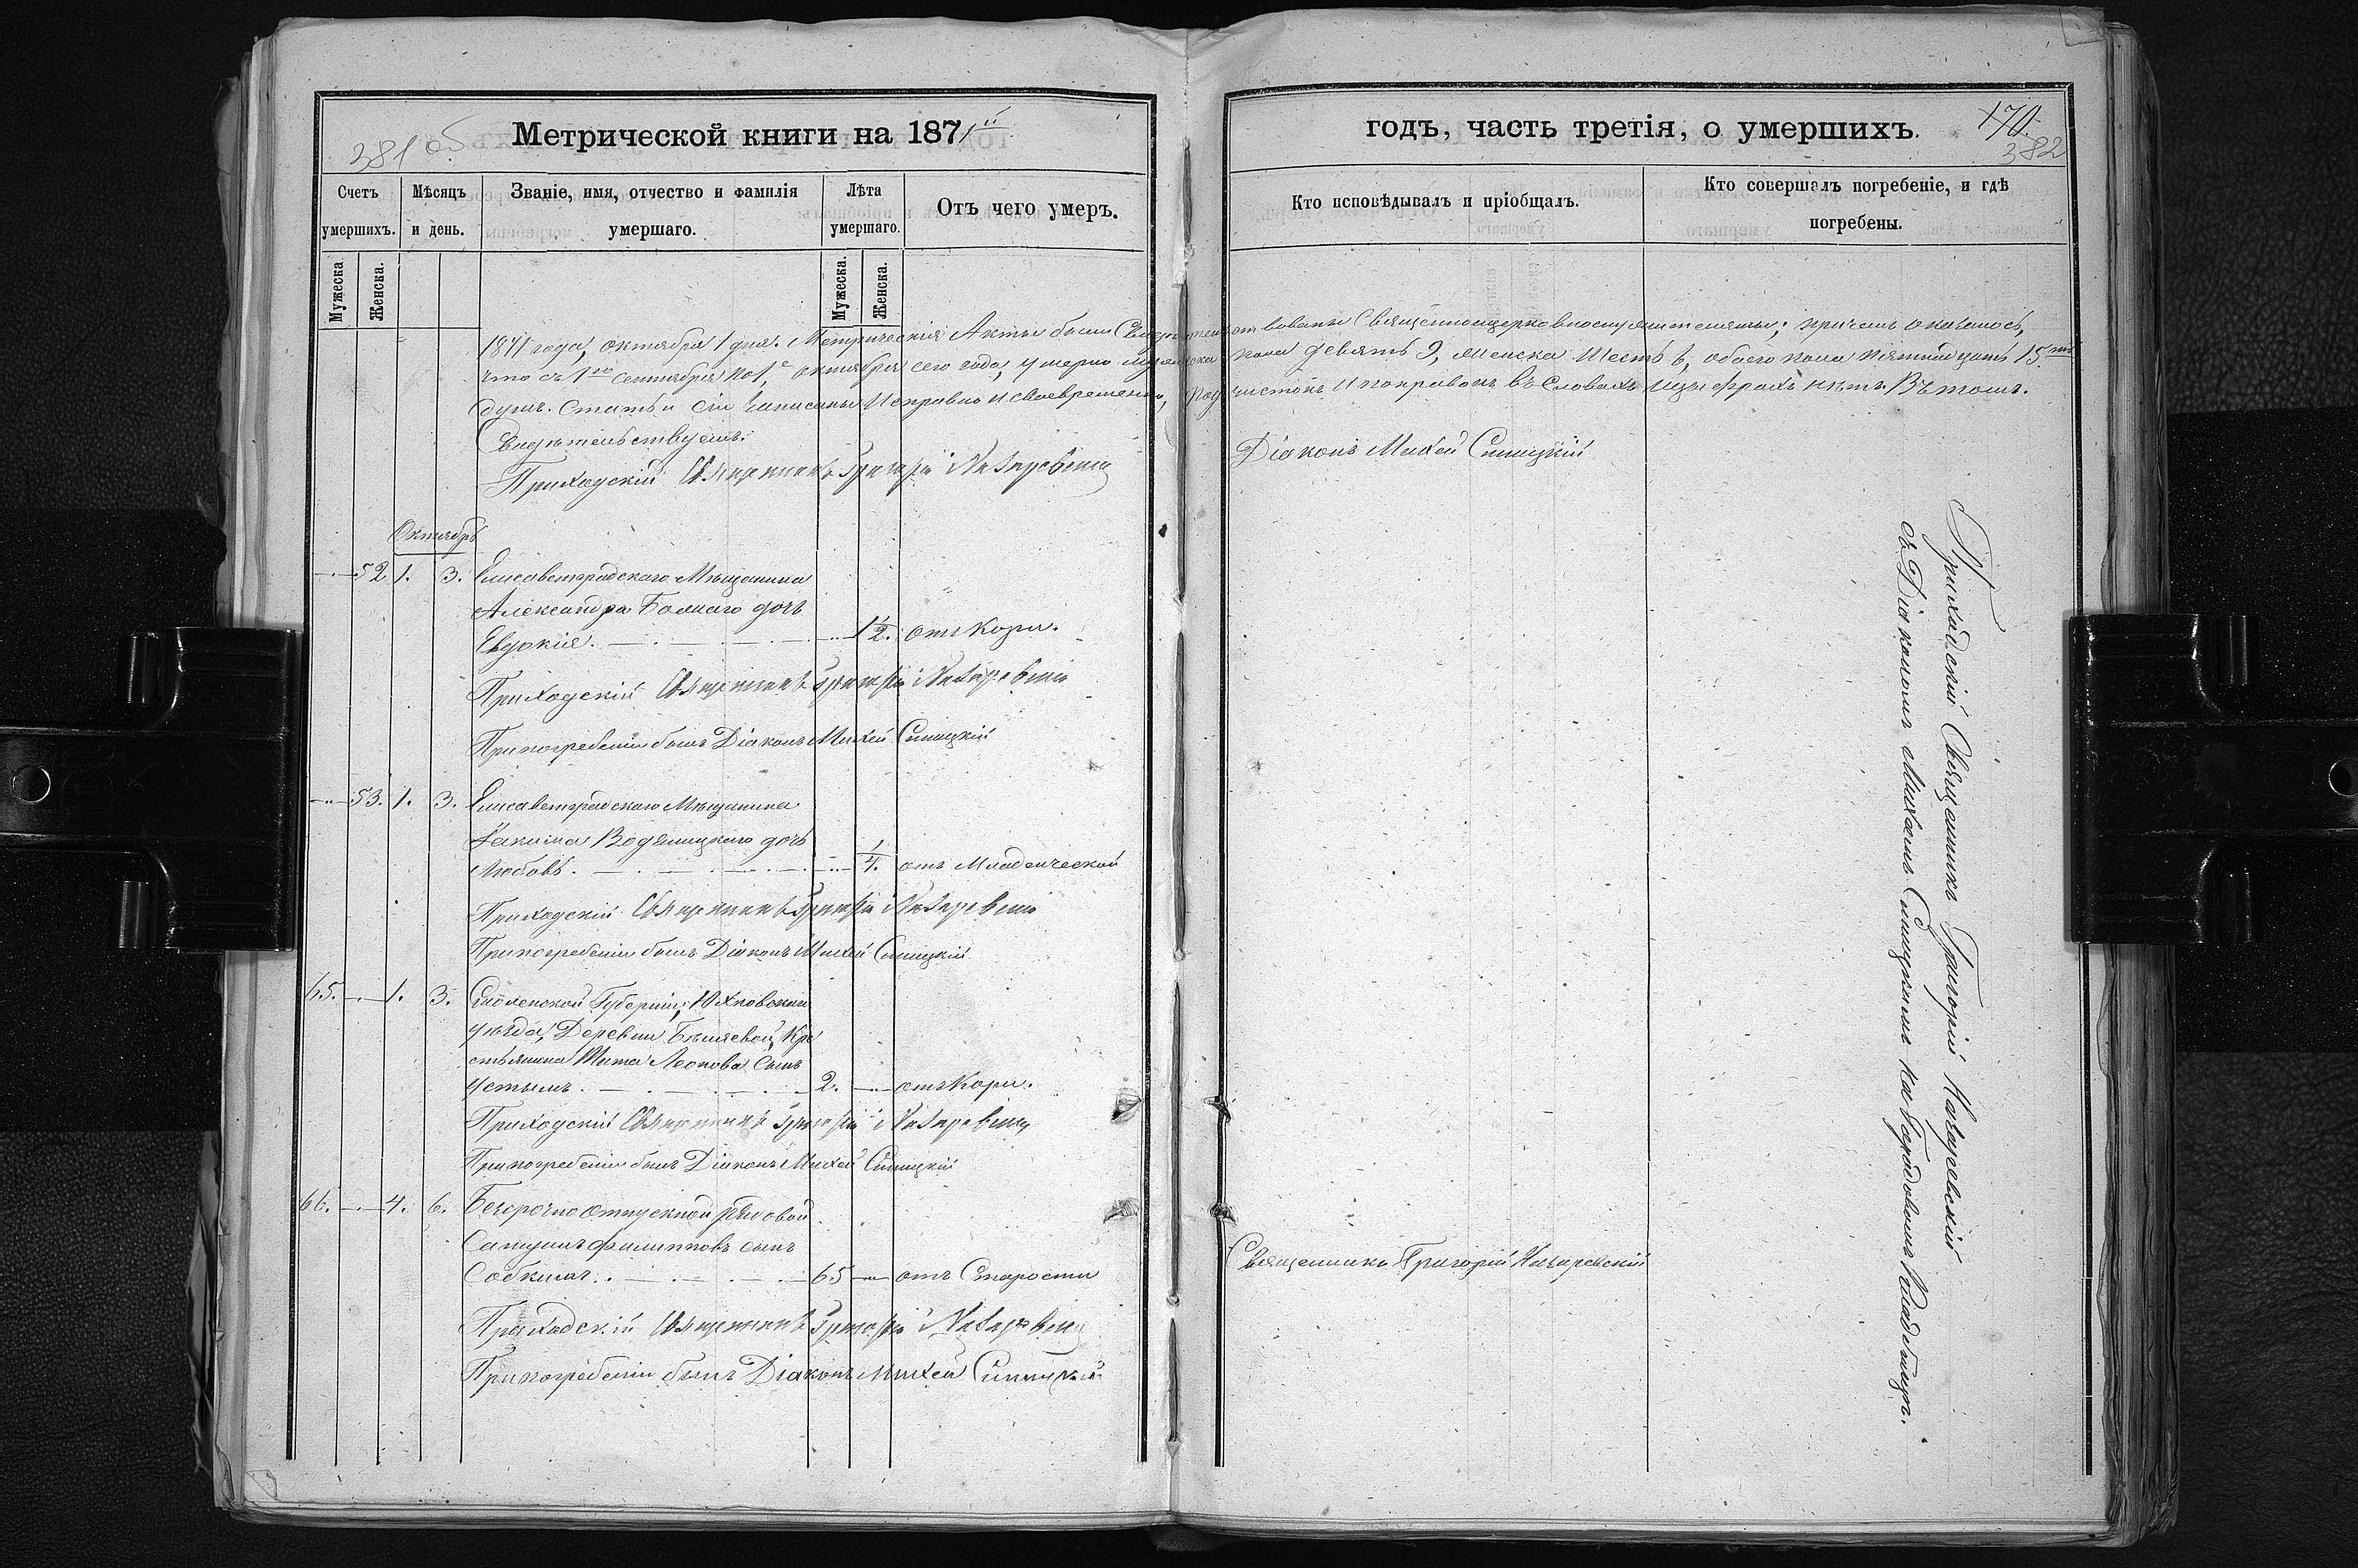 381 об
Метрической книги на 1871й
Счетъ умершихъ.
Мѣсяцъ и день.
Званіе, имя, отчество и фамилія умершаго.
Лѣта умершаго.
Отъ чего умеръ.
Мужеска
Женска.
Мужеска.
Женска.
годъ, часть третія, о умершихъ.
170.
382
Кто исповѣдывалъ и пріобщалъ.
Кто совершалъ погребеніе, и гдѣ погребены.
1871 года, октября 1 дня. Метрическія Акты были Свидѣтельствованы Священноцерковнослужителями; причемъ оказалось,
что съ 1го Сентября по 1е Октября сего года, умерло мужеска пола девять 9, женска Шесть 6, обоего пола пятнадцать 15ть
душъ. Статьи сіи Записаны Исправно и своевременно, подчистокъ и поправокъ въ Словахъ и цыфрахъ нѣтъ. Въ томъ.
Свидѣтельствуемъ.
Приходскій Священникъ Григорій Назаревскій
Діаконъ Михей Синицкій
Октябрь
52 1. 3. Елисаветградскаго Мѣщанина
Александра дочь
Евдокія. 1/2. отъ Кори.
Приходскій Священникъ Григорій Назаревскій
При погребеніи былъ Діаконъ Михей Синицкій
53. 1. 3. Елисаветградскаго Мѣщанина
Іакима Водяницкаго дочь
Любовь. 1/4. отъ Младенческой
Приходскій Священникъ Григорій Назаревскій
При погребеніи былъ Діаконъ Михей Синицкій
65. 1. 3. Смоленской Губерніи, Юхновскаго
уѣзда, Деревни Кре
стьянина Тита Леонова Сынъ
2. отъ Кори.
Приходскій Священникъ Григорій Назаревскій
При погребеніи былъ Діаконъ Михей Синицкій
66. 4. 6. Безсрочно отпускной рядовой
филипповъ сынъ
65 отъ Старости
Священникъ Григорій Назаревскій
Приходскій Священникъ Григорій Назаревскій
При погребеніи былъ Діаконъ Михей Синицкій
Приходскій Священникъ Григорій Назаревскій
съ Діакономъ Михеемъ Синицкимъ на Градовомъ Кладбищѣ.